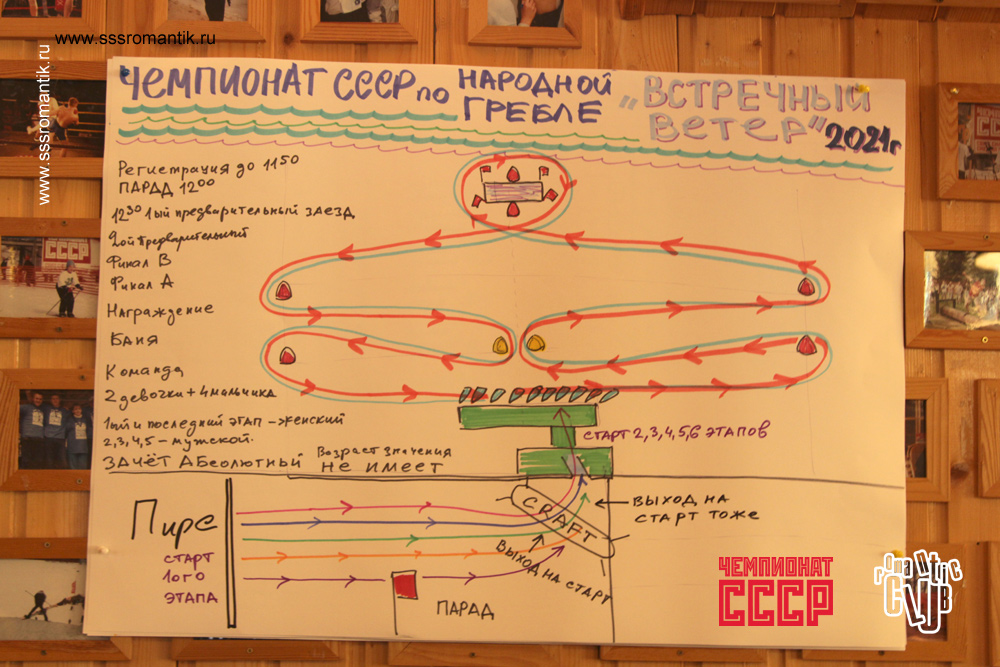 www.sssromantik.ru
www.sssromantik.ru
ЧЕМПИОНАТ СССР по НАРОДНОЙ
ГРЕБЛЕ
„ВСТРЕЧНЫЙ
ВЕТЕР" 2021г
Регистрация до 11 50
ПАРАД 12 00
12 30 1ый предварительный заезд
2ой предварительный
Финал В
Финал А
Награждение
Баня
Команда
2 девочки + 4 мальчика
1ый и последний этап – женский
2,3,4,5 – мужской.
ЗАЧЁТ АБСОЛЮТНЫЙ Возраст значения
НЕ ИМЕЕТ
СТАРТ 2,3,4,5,6 ЭТАПОВ
Пирс
СТАРТ
1ОГО
ЭТАПА
CRAFT
ВЫХОД НА СТАРТ
ВЫХОД НА
СТАРТ ТОЖЕ
ПАРАД
СССР
ЧЕМПИОНАТ
СССР
romantic
CLUB